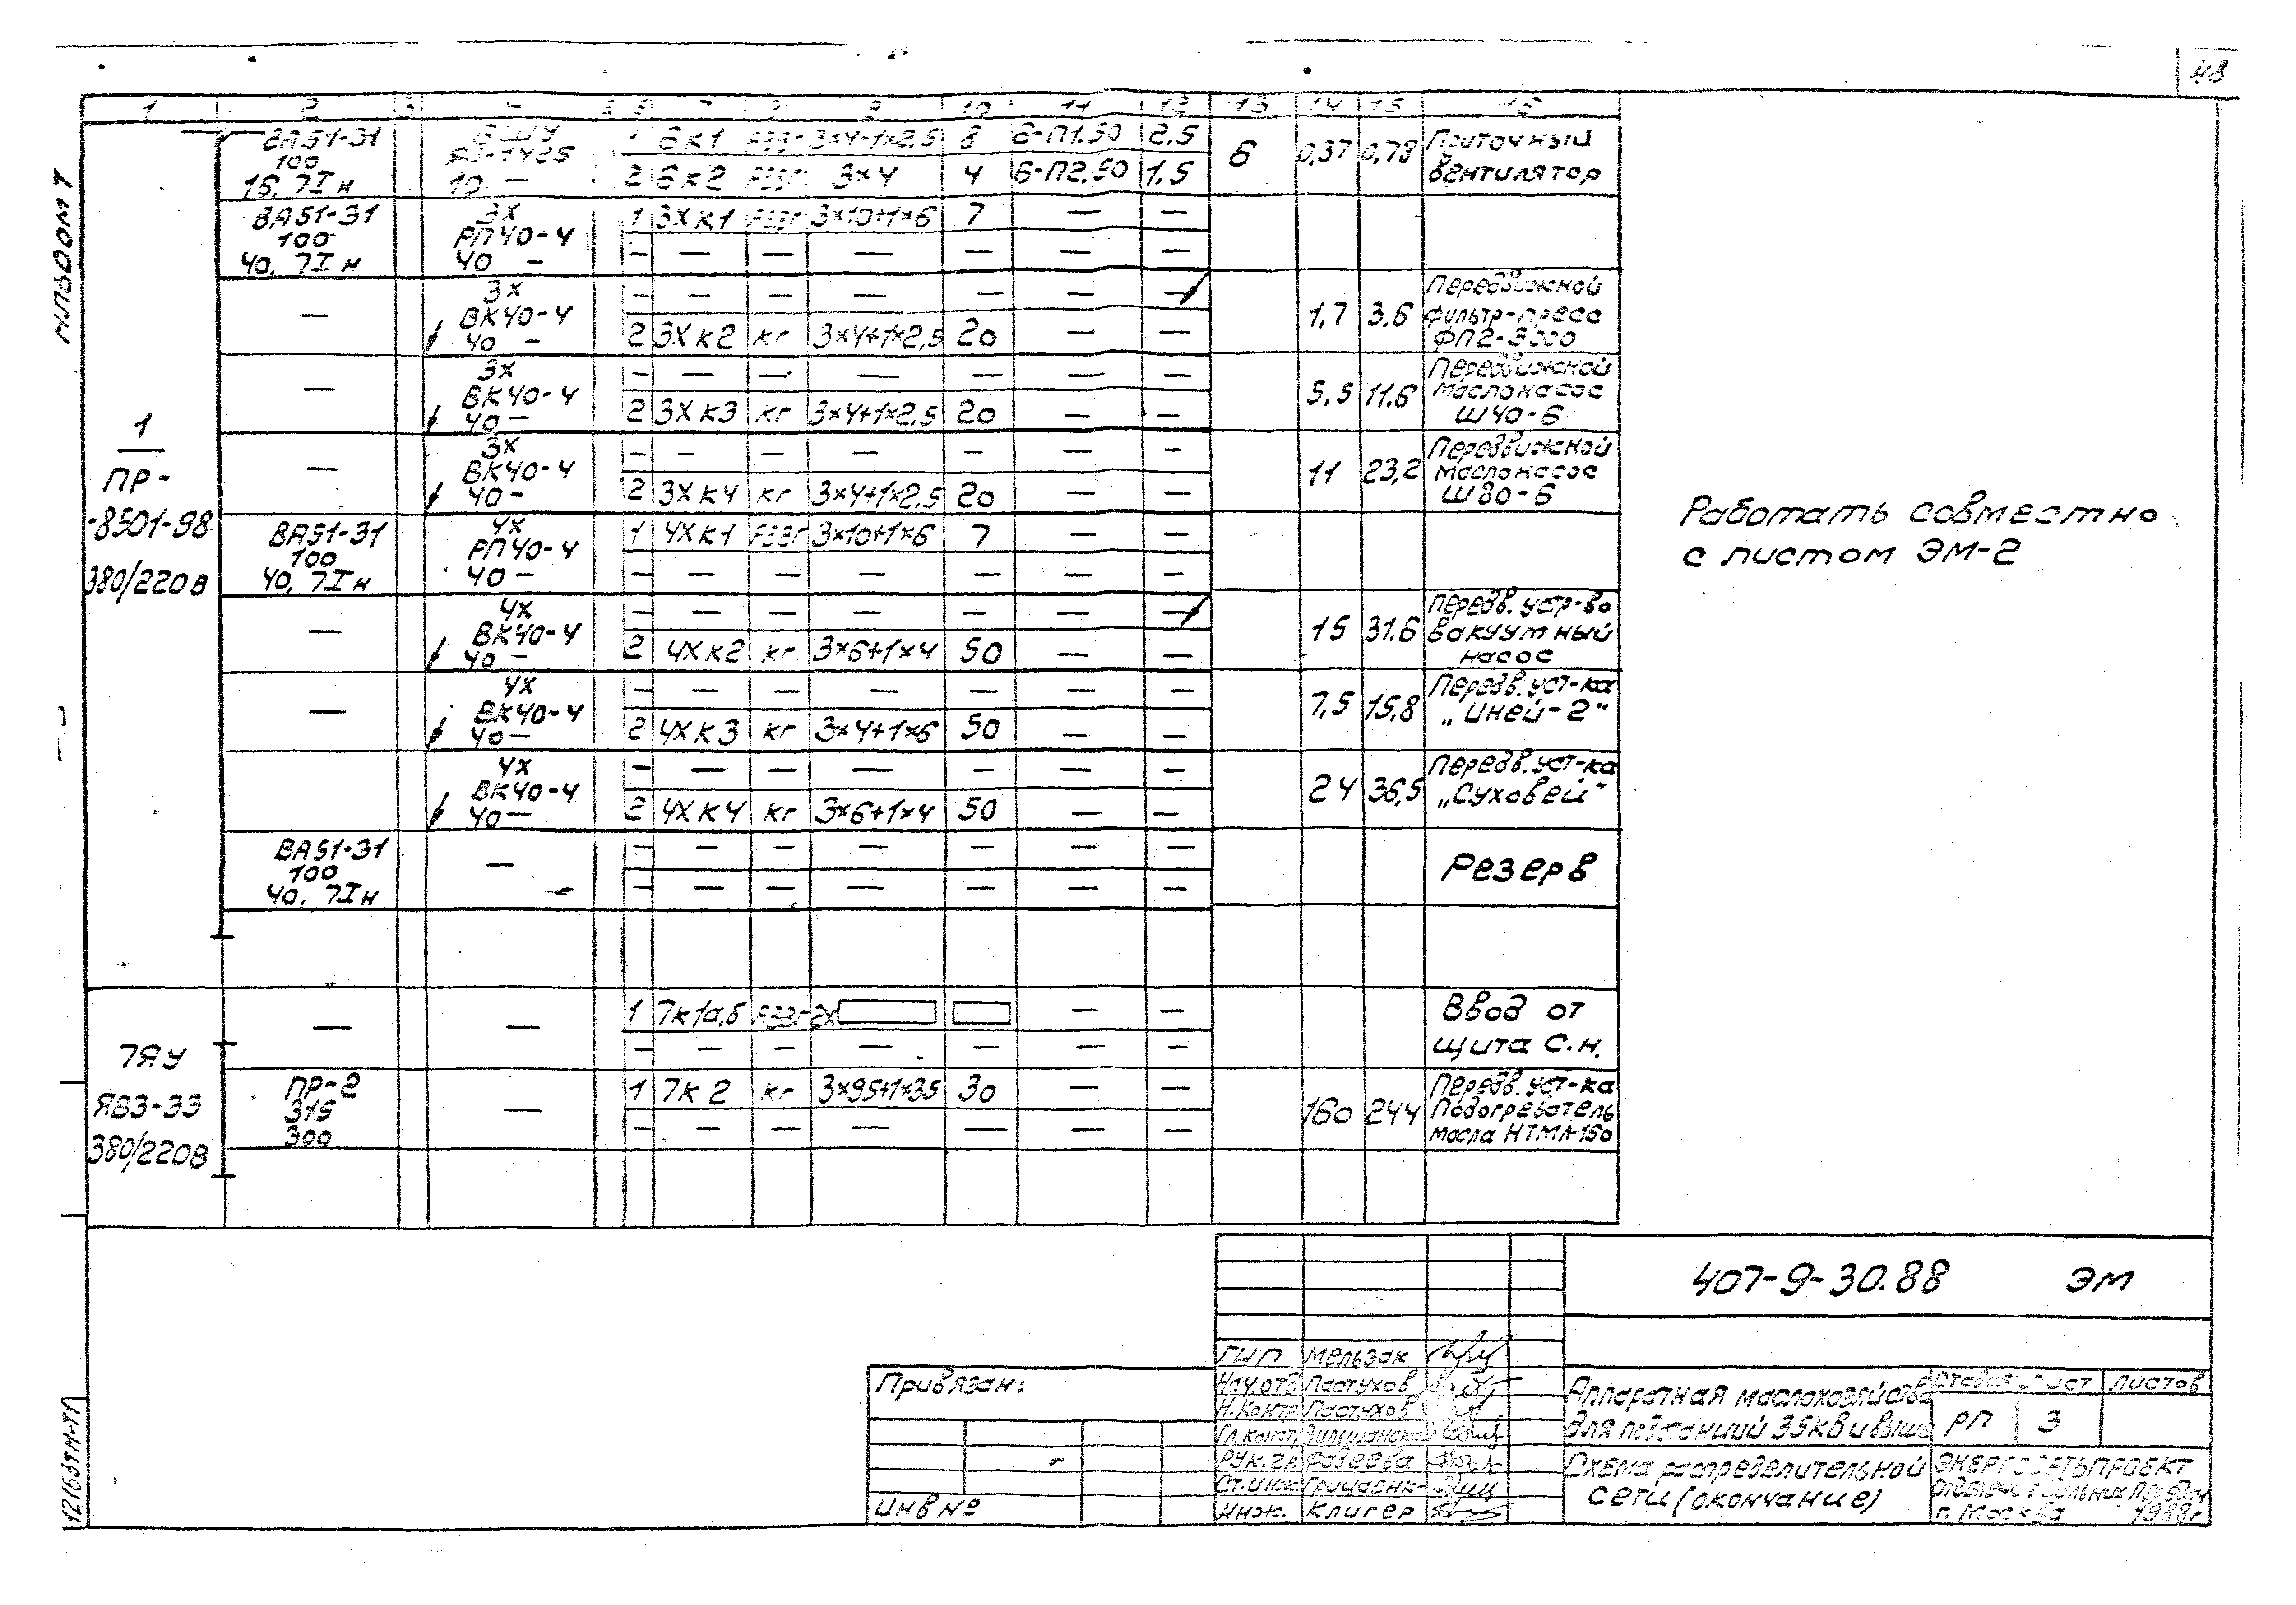 48
Альбом 1
1 2 3 4 5 6 7 8 9 10 11 12 13 14 15 16
ВА51-31
100
16, 7Iн
6ШУ
10 —
1 6К1 АВВГ 3×4+1×2,5 8 6-П1.50 2.5
2 6К2 АВВГ 3×4 4 6-П2.50 1.5
6 0,37 0,78 Приточный
вентилятор
ВА51-31
100
40, 7Iн
3Х
РП40-4
40 —
1 3ХК1 АВВГ 3×10+1×6 7 — —
— — — — — — —
—
3Х
ВК40-4
40 —
— — — — — — —
2 3ХК2 КГ 3×4+1×2,5 20 — —
1,7 3.6 Передвижной
фильтр-пресс
ФП2-3000
—
3Х
ВК40-4
40 —
— — — — — — —
2 3ХК3 КГ 3×4+1×2,5 20 — —
5,5 11.6 Передвижной
маслонасос
Ш40-6
—
3Х
ВК40-4
40 —
— — — — — — —
2 3ХК4 КГ 3×4+1×2,5 20 — —
11 23,2 Передвижной
маслонасос
Ш80-6
1
ПР-
-8501-98
380/220В
ВА51-31
100
40, 7Iн
4Х
РП40-4
40 —
1 4ХК1 АВВГ 3×10+1×6 7 — —
— — — — — — —
—
4Х
ВК40-4
40 —
— — — — — — —
2 4ХК2 КГ 3×6+1×4 50 — —
15 31.6 Передв. устр-во
вакуумный
насос
—
4Х
ВК40-4
40 —
— — — — — — —
2 4ХК3 КГ 3×4+1×6 50 — —
7,5 15,8 Передв. уст-ка
„Иней-2"
4Х
ВК40-4
40 —
— — — — — — —
2 4ХК4 КГ 3×6+1×4 50 — —
24 36,5 Передв. уст-ка
„Суховей"
ВА51-31
100
40, 7Iн
—
— — — — — — —
— — — — — — —
Резерв
— —
1 7К1а,б АВВГ 2х — —
— — — — — — —
Ввод от
щита С.Н.
7ЯУ
ЯВЗ-33
380/220В
ПР-2
315
300
—
1 7К2 КГ 3×95+1×35 30 — —
— — — — — — —
160 244 Передв. уст-ка
Подогреватель
масла НТМЛ-160
Работать совместно
с листом ЭМ-2
12163тм-т1
407-9-30.88 ЭМ
Привязан:
Инв №
ГИП Мельзак
Нач.отд Пастухов
Н.Контр. Пастухов
Гл.конст.
Рук.гр. Фадеева
Ст.инж.
Инж. Клигер
Аппаратная маслохозяйства
для подстанций 35кВ и выше
Стадия Лист Листов
РП 3
Схема распределительной
сети (окончание)
ЭНЕРГОСЕТЬПРОЕКТ
г. Москва 1988г